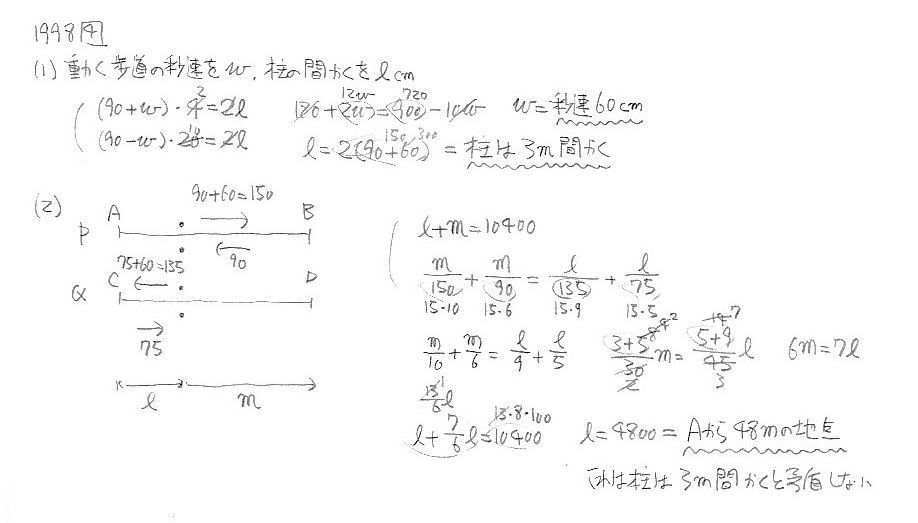 1998 4
(1) 動く歩道の秒速をw, 柱の間かくをlcm
(90+w)・4 2=2l 126+2w 12w=900 720-10w w=秒速60cm
(90-w)・20 10=2l l=2(90+60) 150 300=柱は3m間かく
(2) 90+60=150
A B
P
90
75+60=135
C D
Q
75
l m
l+m=10400
m/150+m/90=l/135+l/75
15・10 15・6 15・9 15・5
m/10+m/6=l/9+l/5 3+5/30 m=5+9/45 l 6m=7l
13/6 l
l+7/6 l=10400 13・8・100 l=4800=Aから48mの地点
これは柱は3m間かくと矛盾しない